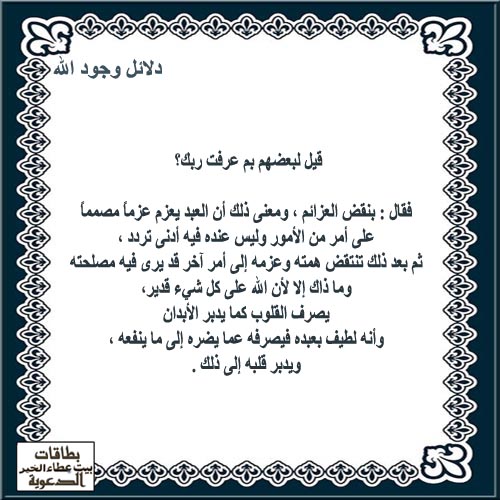 دلائل وجود الله
قيل لبعضهم بم عرفت ربك؟
فقال : بنقض العزائم ، ومعنى ذلك أن العبد يعزم عزماً مصمماً
على أمر من الأمور وليس عنده فيه أدنى تردد ،
ثم بعد ذلك تنتقض همته وعزمه إلى أمر آخر قد يرى فيه مصلحته
وما ذاك إلا لأن الله على كل شيء قدير،
يصرف القلوب كما يدبر الأبدان
وأنه لطيف بعبده فيصرفه عما يضره إلى ما ينفعه ،
ويدبر قلبه إلى ذلك .
بطاقات
بيت عطاء الخير
الدعوية